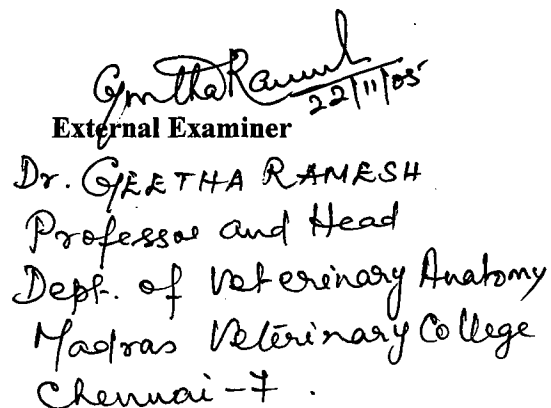 Geetha Ramesh
22/11/05
External Examiner
Dr. GEETHA RAMESH
Professor and Head
Dept. of Veterinary Anatomy
Madras Veterinary College
Chennai - 7.